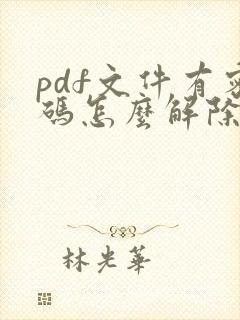 pdf文件有密
碼怎麼解除
林光華